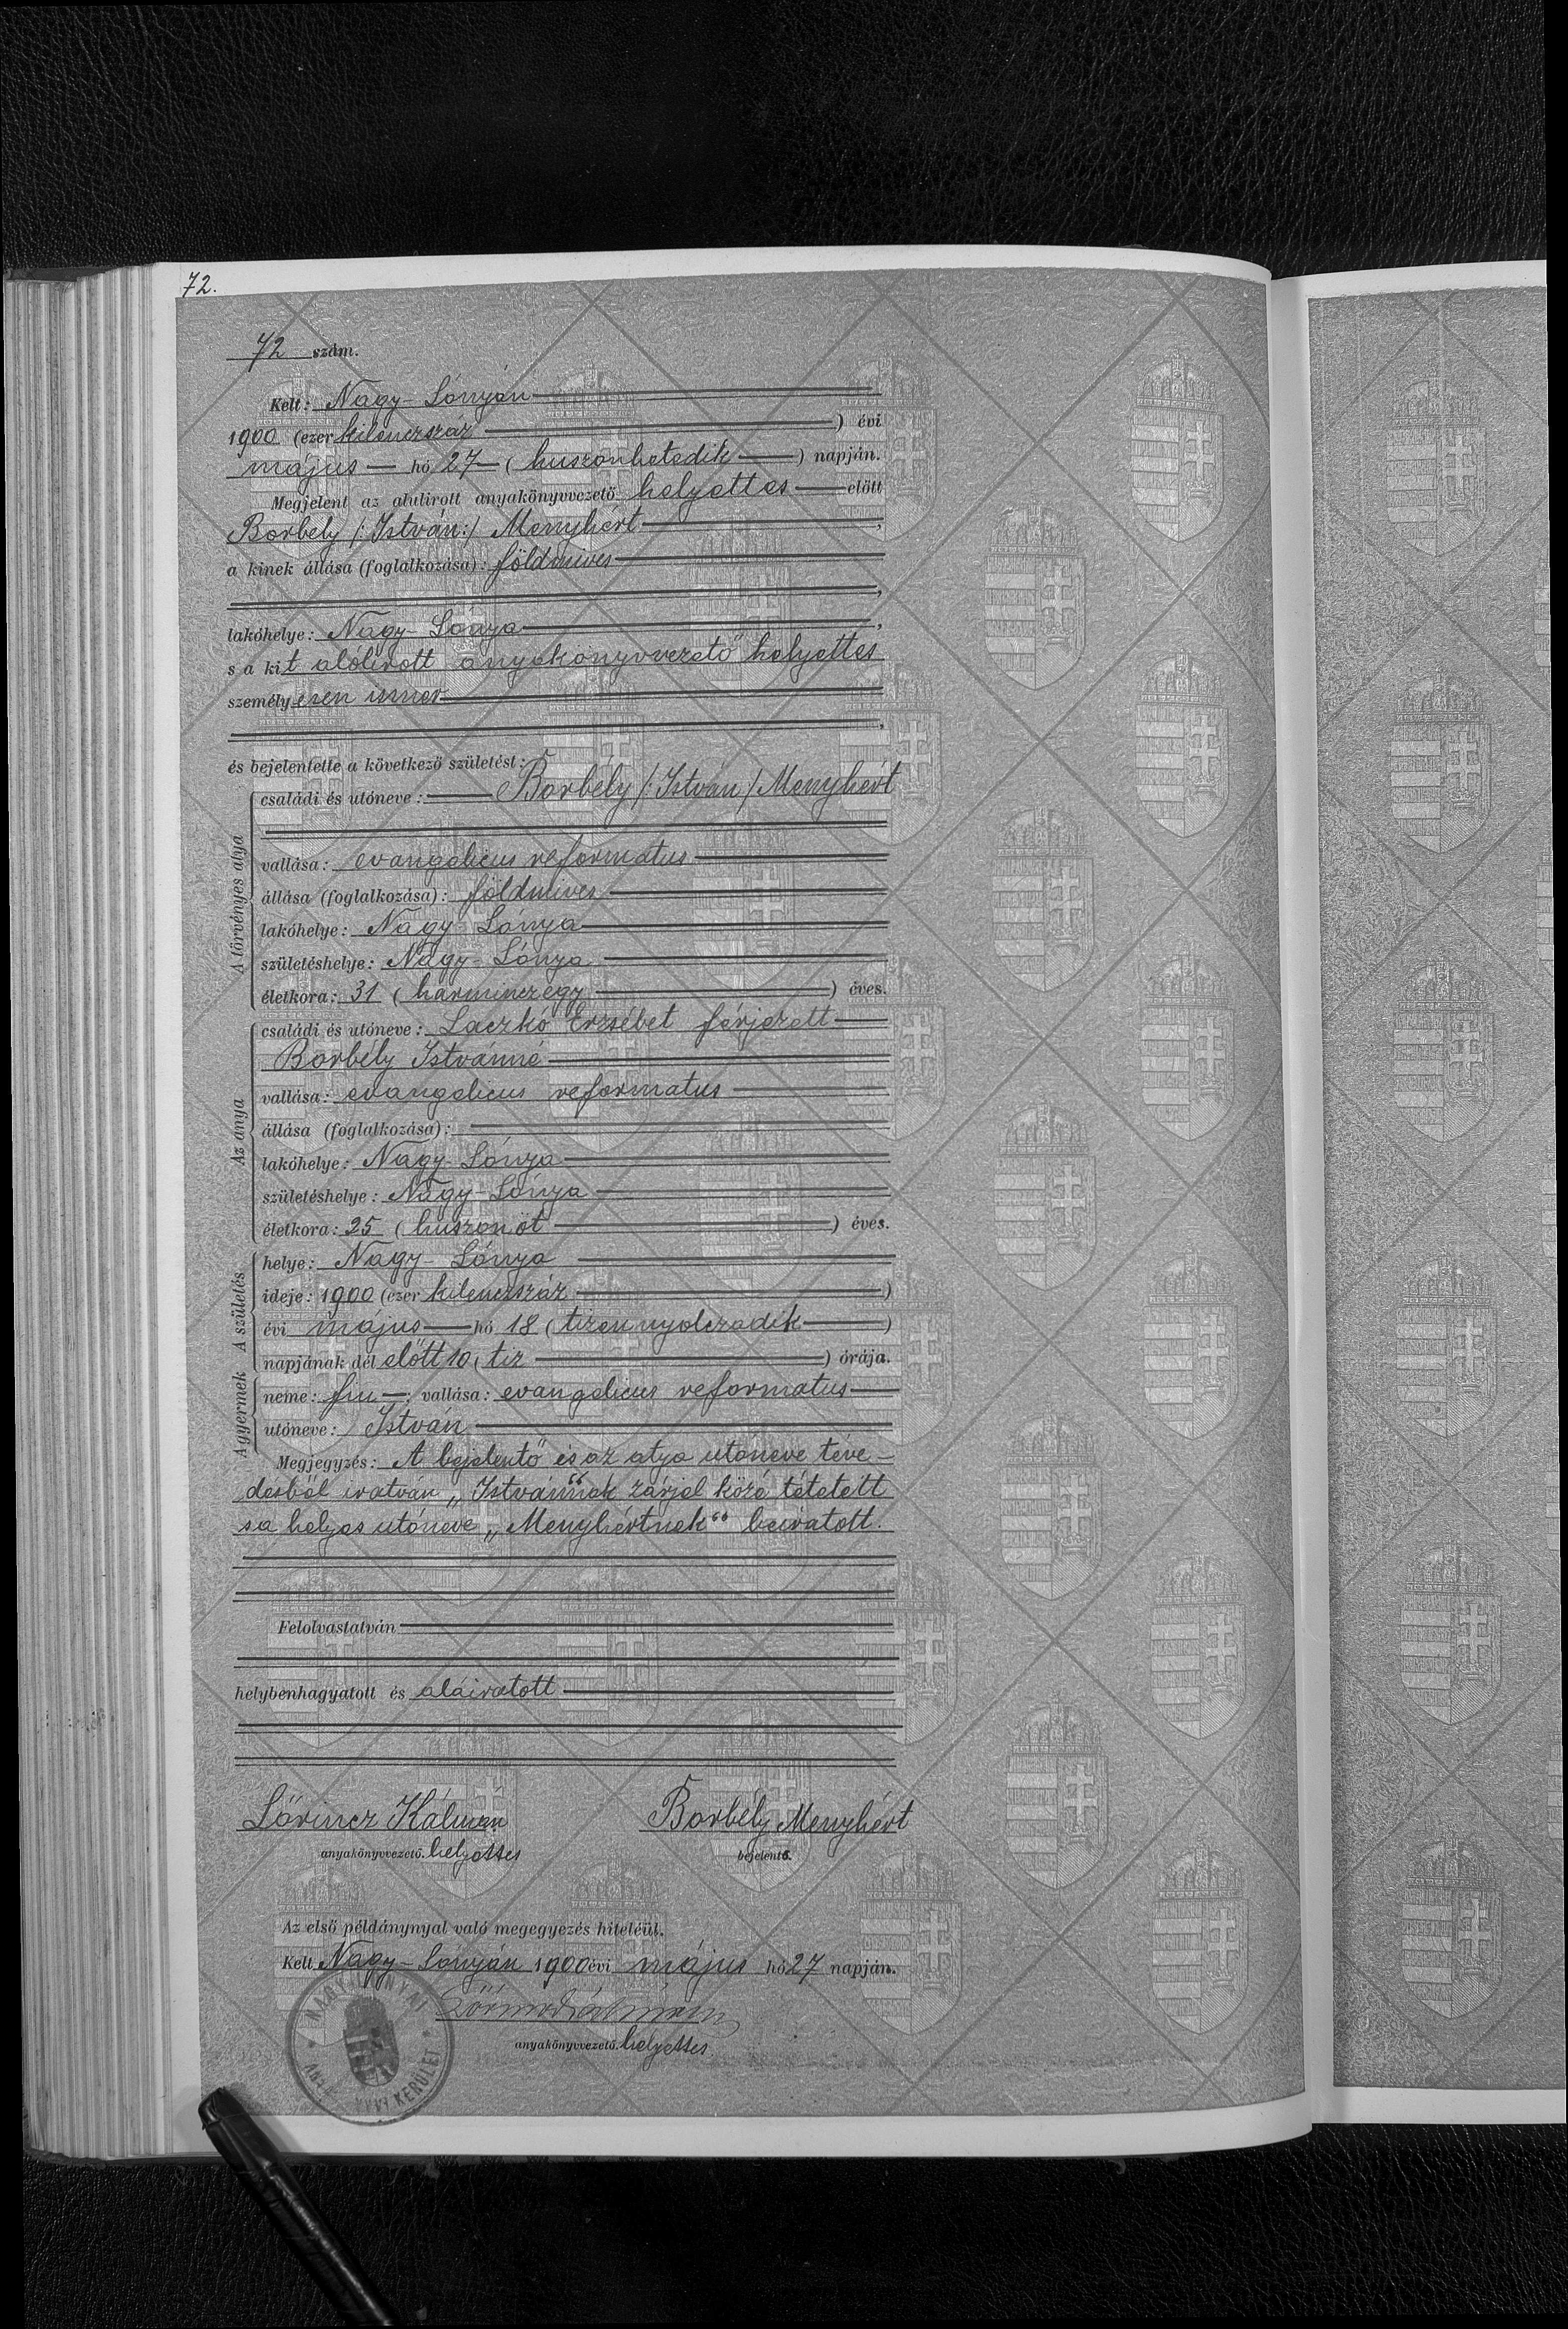 72.
72 szám.
Kelt: Nagy-Lónyán
1900 (ezer kilenczszáz ) évi
május hó 27 ( huszonhetedik ) napján.
Megjelent az alulirott anyakönyvvezető helyettes előtt
Borbély /: István :/ Menyhért ,
a kinek állása (foglalkozása): földmives
,
lakóhelye: Nagy-Lónya ,
s a kit alólirott anyakönyvvezető helyettes
személyesen ismer
,
és bejelentette a következő születést:
A törvényes atya
családi és utóneve: Borbély /: István / Menyhért
vallása: evangelicus reformatus
állása (foglalkozása): földmives
lakóhelye: Nagy-Lónya
születéshelye: Nagy-Lónya
életkora: 31 ( harminczegy ) éves.
Az anya
családi és utóneve: Laczkó Erzsébet férjezett
Borbély Istvánné
vallása: evangelicus reformatus
állása (foglalkozása):
lakóhelye: Nagy-Lónya
születéshelye: Nagy-Lónya
életkora: 25 ( huszonöt ) éves.
A születés
helye: Nagy-Lónya
ideje: 1900 (ezer kilenczszáz )
évi május hó 18 ( tizennyolczadik )
napjának dél előtt 10 ( tiz ) órája.
A gyermek
neme: fiu ; vallása: evangelicus reformatus
utóneve: István
Megjegyzés: A bejelentő és az atya utóneve téve-
désből iratván „Istvánnak“ zárjel közé tétetett
s a helyes utóneve „Menyhértnek“ beiratott.
Felolvastatván
helybenhagyatott és aláiratott
Lőrincz Kálmán Borbély Menyhért
anyakönyvvezető. helyettes bejelentő.
Az első példánynyal való megegyezés hiteléül.
Kelt Nagy-Lónyán 1900 évi május hó 27 napján.
Lőrincz Kálmán
anyakönyvvezető. helyettes
NAGY-LÓNYAI
KERÜLET